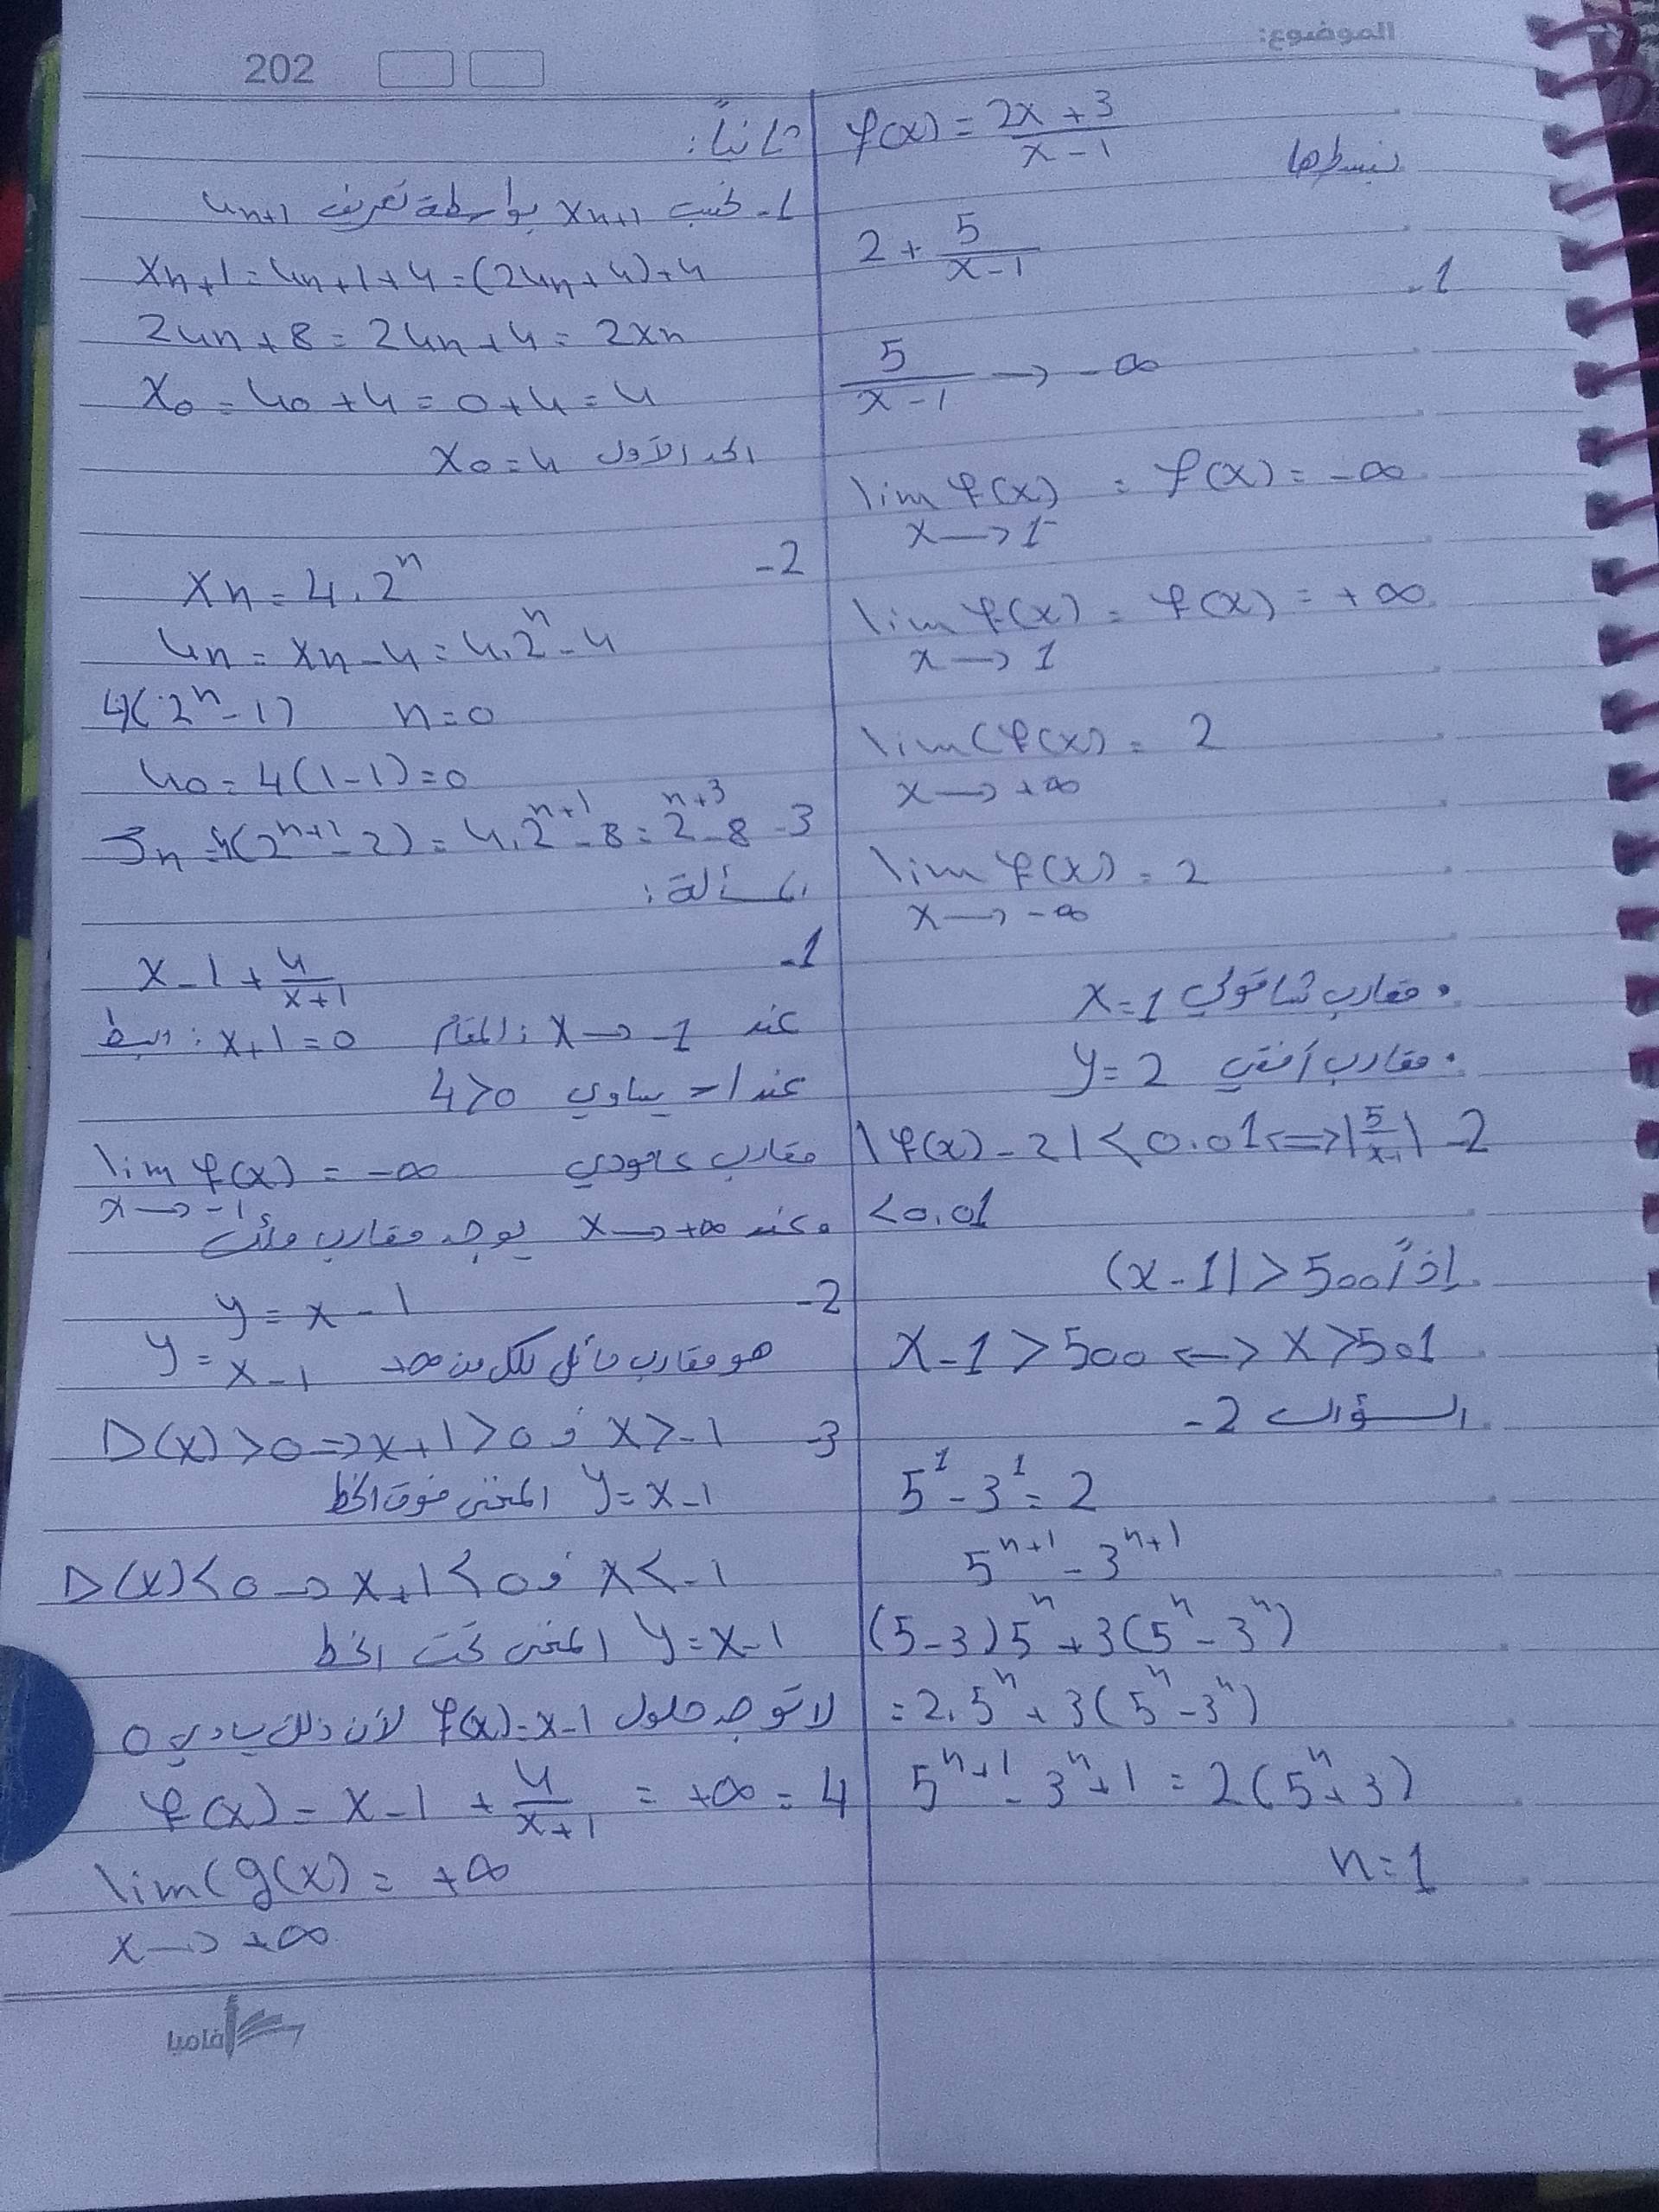 الموضوع:
202
f(x) = (2x + 3)/(x - 1) نبسطها
2 + 5/(x - 1)
1-
5/(x - 1) → -∞
lim f(x) = f(x) = -∞
x → 1⁻
lim f(x) = f(x) = +∞
x → 1
lim (f(x) = 2
x → +∞
lim f(x) = 2
x → -∞
• مقارب شاقولي x = 1
• مقارب أفقي y = 2
2- |f(x) - 2| < 0.01 <=> |5/(x-1)|
< 0.01
إذاً (x - 1| > 500
x - 1 > 500 <-> x > 501
السؤال 2-
5¹ - 3¹ = 2
5ⁿ⁺¹ - 3ⁿ⁺¹
(5 - 3)5ⁿ + 3(5ⁿ - 3ⁿ)
= 2.5ⁿ + 3(5ⁿ - 3ⁿ)
5ⁿ⁺¹ - 3ⁿ + 1 = 2(5ⁿ + 3)
n = 1
ثانياً:
1- نكتب xn+1 بواسطة تعريف un+1
xn+1 = un+1 + 4 = (2un + 4) + 4
2un + 8 = 2un + 4 = 2xn
x0 = u0 + 4 = 0 + 4 = 4
الحد الأول x0 = 4
2-
xn = 4.2ⁿ
un = xn - 4 = 4.2ⁿ - 4
4(2ⁿ - 1) n = 0
u0 = 4(1 - 1) = 0
3- Jn = 4(2ⁿ⁺¹ - 2) = 4.2ⁿ⁺¹ - 8 = 2ⁿ⁺³ - 8
المسألة:
1-
x - 1 + 4/(x + 1)
عند x → -1 : المقام x + 1 = 0 : البسط
عند 1- يساوي 4 > 0
مقارب عامودي lim f(x) = -∞
x → -1
وعند x → +∞ يوجد مقارب مائل
2- y = x - 1
y = x - 1 هو مقارب مائل لكل من +∞
3- D(x) > 0 => x + 1 > 0 و x > -1
y = x - 1 المنحني فوق الخط
D(x) < 0 → x + 1 < 0 و x < -1
y = x - 1 المنحني تحت الخط
لا توجد حلول f(x) = x - 1 لأن ذلك يساوي 0
f(x) = x - 1 + 4/(x + 1) = +∞ = 4
lim (g(x) = +∞
x → +∞
أفاميا